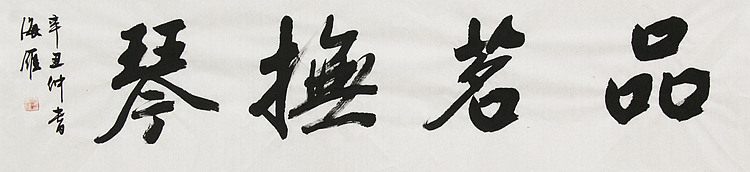 品茗撫琴
辛丑仲春
海雁